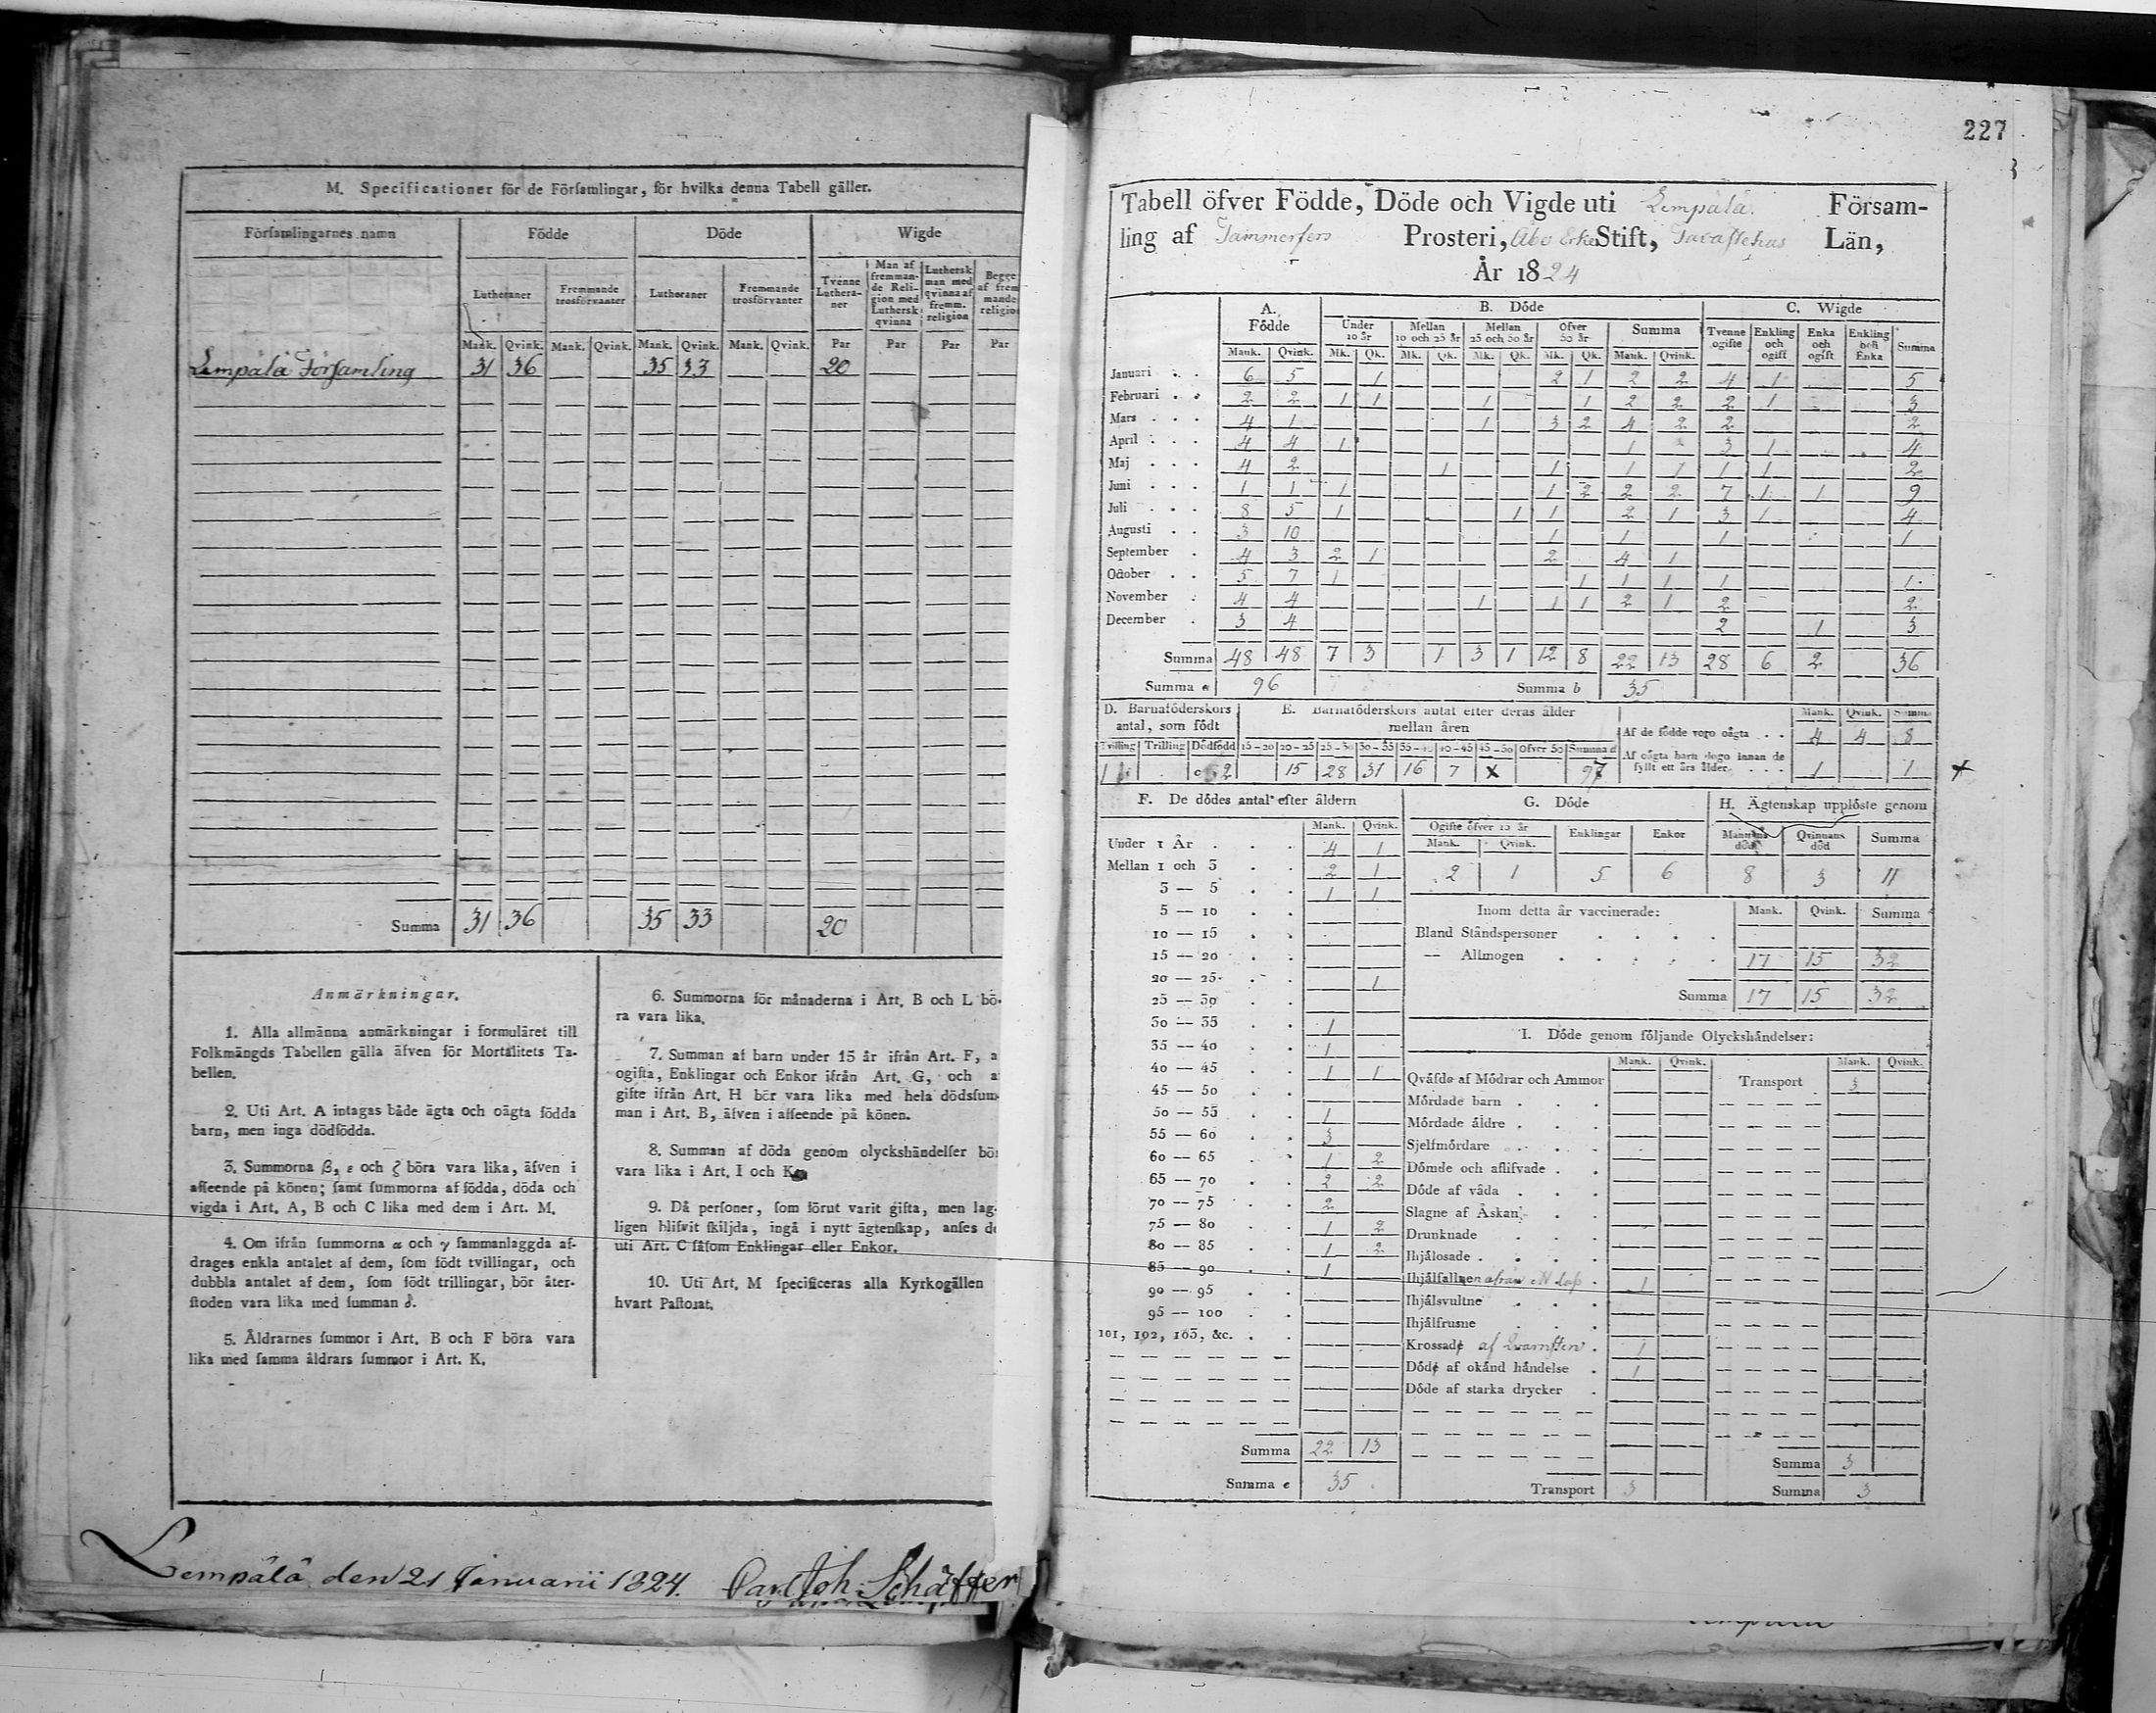 M. Specificationer för de Församlingar, för hvilka denna Tabell gäller.
Församlingarnes namn Födde Döde Wigde
Lutheraner Fremmande trosförvanter Lutheraner Fremmande trosförvanter Tvenne Lutheraner Man af fremmande Religion med Luthersk qvinna Luthersk man med qvinna af fremm. religion Begge af frem mande religion
Mank. Qvink. Mank. Qvink. Mank. Qvink. Mank. Qvink. Par Par Par Par
Lempälä Församling 31 36 35 33 20
Summa 31 36 35 33 20
Anmärkningar.
1. Alla allmänna anmärkningar i formuläret till
Folkmängds Tabellen gälla äfven för Mortalitets Ta-
bellen.
2. Uti Art. A intagas både ägta och oägta födda
barn, men inga dödfödda.
3. Summorna β, ε och ζ böra vara lika, äfven i
afseende på könen; samt summorna af födda, döda och
vigda i Art. A, B och C lika med dem i Art. M.
4. Om ifrån summorna α och γ sammanlaggda af-
drages enkla antalet af dem, som födt tvillingar, och
dubbla antalet af dem, som födt trillingar, bör åter-
stoden vara lika med summan δ.
5. Åldrarnes summor i Art. B och F böra vara
lika med samma åldrars summor i Art. K.
6. Summorna för månaderna i Art. B och L bö-
ra vara lika.
7. Summan af barn under 15 år ifrån Art. F, a
ogifta, Enklingar och Enkor ifrån Art. G, och a
gifte ifrån Art. H bör vara lika med hela dödsfum-
man i Art. B, äfven i afseende på könen.
8. Summan af döda genom olyckshändelser bö
vara lika i Art. I och K
9. Då personer, som förut varit gifta, men lag-
ligen blifvit skiljda, ingå i nytt ägtenskap, anses de
uti Art. C såsom Enklingar eller Enkor.
10. Uti Art. M specificeras alla Kyrkogällen
hvart Pastorat.
Lempälä den 21 Januarii 1824. Carl Joh. Schäffer
227
Tabell öfver Födde, Döde och Vigde uti Lempälä. Försam-
ling af Tammerfors Prosteri, Åbo Erke Stift, Tavastehus Län,
År 1824
A. Födde B. Döde C. Wigde
Under 10 år Mellan 10 och 25 år Mellan 25 och 50 år Öfver 50 år Summa Tvenne ogifte Enkling och ogift Enka och ogift Enkling och Enka Summa
Mank. Qvink. Mk. Qk. Mk. Qk. Mk. Qk. Mk. Qk. Mank. Qvink.
Januari 6 5 1 2 1 2 2 4 1 5
Februari 2 2 1 1 1 1 2 2 2 1 3
Mars 4 1 1 3 2 4 2 2 2
April 4 4 1 1 3 1 4
Maj 4 2 1 1 1 1 1 1 2
Juni 1 1 1 1 2 2 2 7 1 1 9
Juli 8 5 1 1 1 2 1 3 1 4
Augusti 3 10 1 1 1 1
September 4 3 2 1 2 4 1
October 5 7 1 1 1 1 1 1
November 4 4 1 1 1 2 1 2 2
December 3 4 2 1 3
Summa 48 48 7 3 1 3 1 12 8 22 13 28 6 2 36
Summa a 96 Summa b 35
D. Barnaföderskors antal, som födt E. Barnaföderskors antal efter deras ålder mellan åren
Tvilling Trilling Dödfödd 15-20 20-25 25-30 30-35 35-40 40-45 45-50 Öfver 50 Summa d
1 2 15 28 31 16 7 x 97
Mank. Qvink. Summa
Af de födde voro oägta 4 4 8
Af oägta barn dogo innan de fyllt ett års ålder 1 1
F. De dödes antal efter åldern
Mank. Qvink.
Under 1 År 4 1
Mellan 1 och 3 2 1
3 — 5 1 1
5 — 10
10 — 15
15 — 20
20 — 25 1
25 — 30
30 — 35 1
35 — 40 1
40 — 45 1 1
45 — 50
50 — 55 1
55 — 60 3
60 — 65 1 2
65 — 70 2 2
70 — 75 2
75 — 80 1 2
80 — 85 1 2
85 — 90 1
90 — 95
95 — 100
101, 102, 103, &c.
Summa 22 13
Summa e 35
G. Döde
Ogifte öfver 15 år Enklingar Enkor
Mank. Qvink.
2 1 5 6
H. Ägtenskap upplöste genom
Mannens död Qvinnans död Summa
8 3 11
Inom detta år vaccinerade: Mank. Qvink. Summa
Bland Ståndspersoner
— Allmogen 17 15 32
Summa 17 15 32
I. Döde genom följande Olyckshändelser:
Mank. Qvink. Mank. Qvink.
Qväfde af Mödrar och Ammor Transport 3
Mördade barn
Mördade äldre
Sjelfmördare
Dömde och aflifvade
Döde af våda
Slagne af Åskan
Drunknade
Ihjälosade
Ihjälfallnen 1
Ihjälsvultne
Ihjälfrusne
Krossade af Qvarnsten 1
Döde af okänd händelse 1
Döde af starka drycker
Summa 3
Transport 3 Summa 3